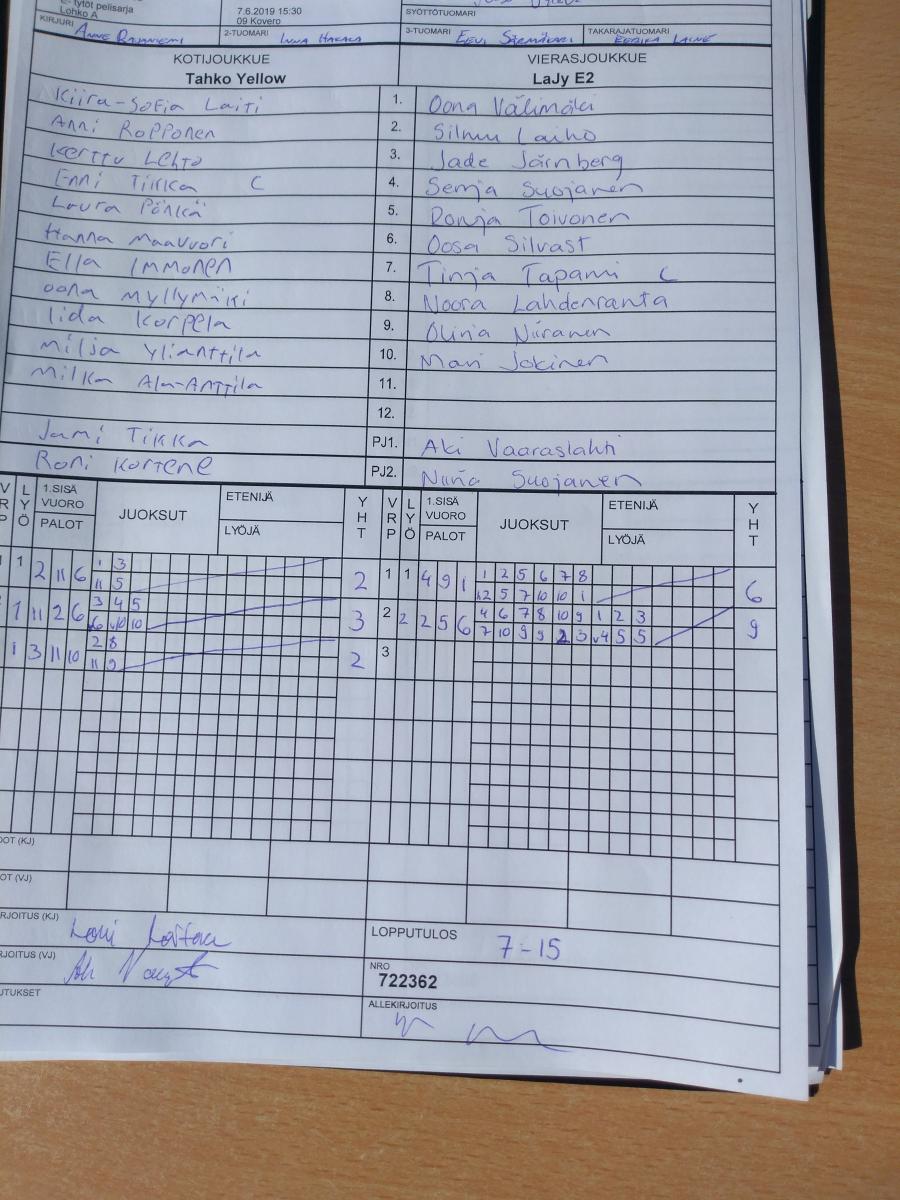 E-tytöt pelisarja
Lohko A
7.6.2019 15:30
09 Kovero
SYÖTTÖTUOMARI
KIRJURI Anne Rajaniemi
2-TUOMARI Inna Hakala
3-TUOMARI Eevi
TAKARAJATUOMARI Eerika Laine
KOTIJOUKKUE
Tahko Yellow
VIERASJOUKKUE
LaJy E2
Kiira-Sofia Laiti 1. Oona Välimäki
Anni Ropponen 2. Silmu Laiho
Kerttu Lehto 3. Jade Järnberg
Enni Tikka C 4. Semja Suojanen
Laura Pönkä 5. Ronja Toivonen
Hanna Maavuori 6. Oosa Silvast
Ella Immonen 7. Tinja Tapami C
Oona Myllymäki 8. Noora Lahdenranta
Iida Korpela 9. Olivia Niiranen
Milja Ylianttila 10. Mari Jokinen
Milka Ala-Anttila 11.
12.
Jami Tikka PJ1. Aki Vaaraslahti
Roni Kortene PJ2. Niina Suojanen
VRP LYÖ 1.SISÄ VUORO PALOT JUOKSUT ETENIJÄ LYÖJÄ YHT VRP LYÖ 1.SISÄ VUORO PALOT JUOKSUT ETENIJÄ LYÖJÄ YHT
1 1 2 11 6 1 3 2 1 1 4 9 1 1 2 5 6 7 8 6
11 5 2 5 7 10 10 1
1 11 2 6 3 4 5 3 2 2 2 5 6 4 6 7 8 10 9 1 2 3 9
6 v10 10 7 10 9 9 2 3 v4 5 5
1 3 11 10 2 8 2 3
11 9
OOT (KJ)
OT (VJ)
RJOITUS (KJ)
LOPPUTULOS 7-15
RJOITUS (VJ)
NRO
722362
UTUKSET
ALLEKIRJOITUS